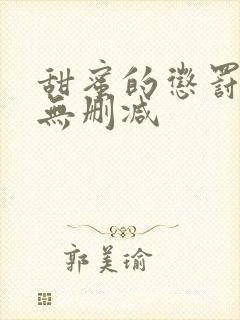 甜蜜的懲罰
無刪減
郭美瑜